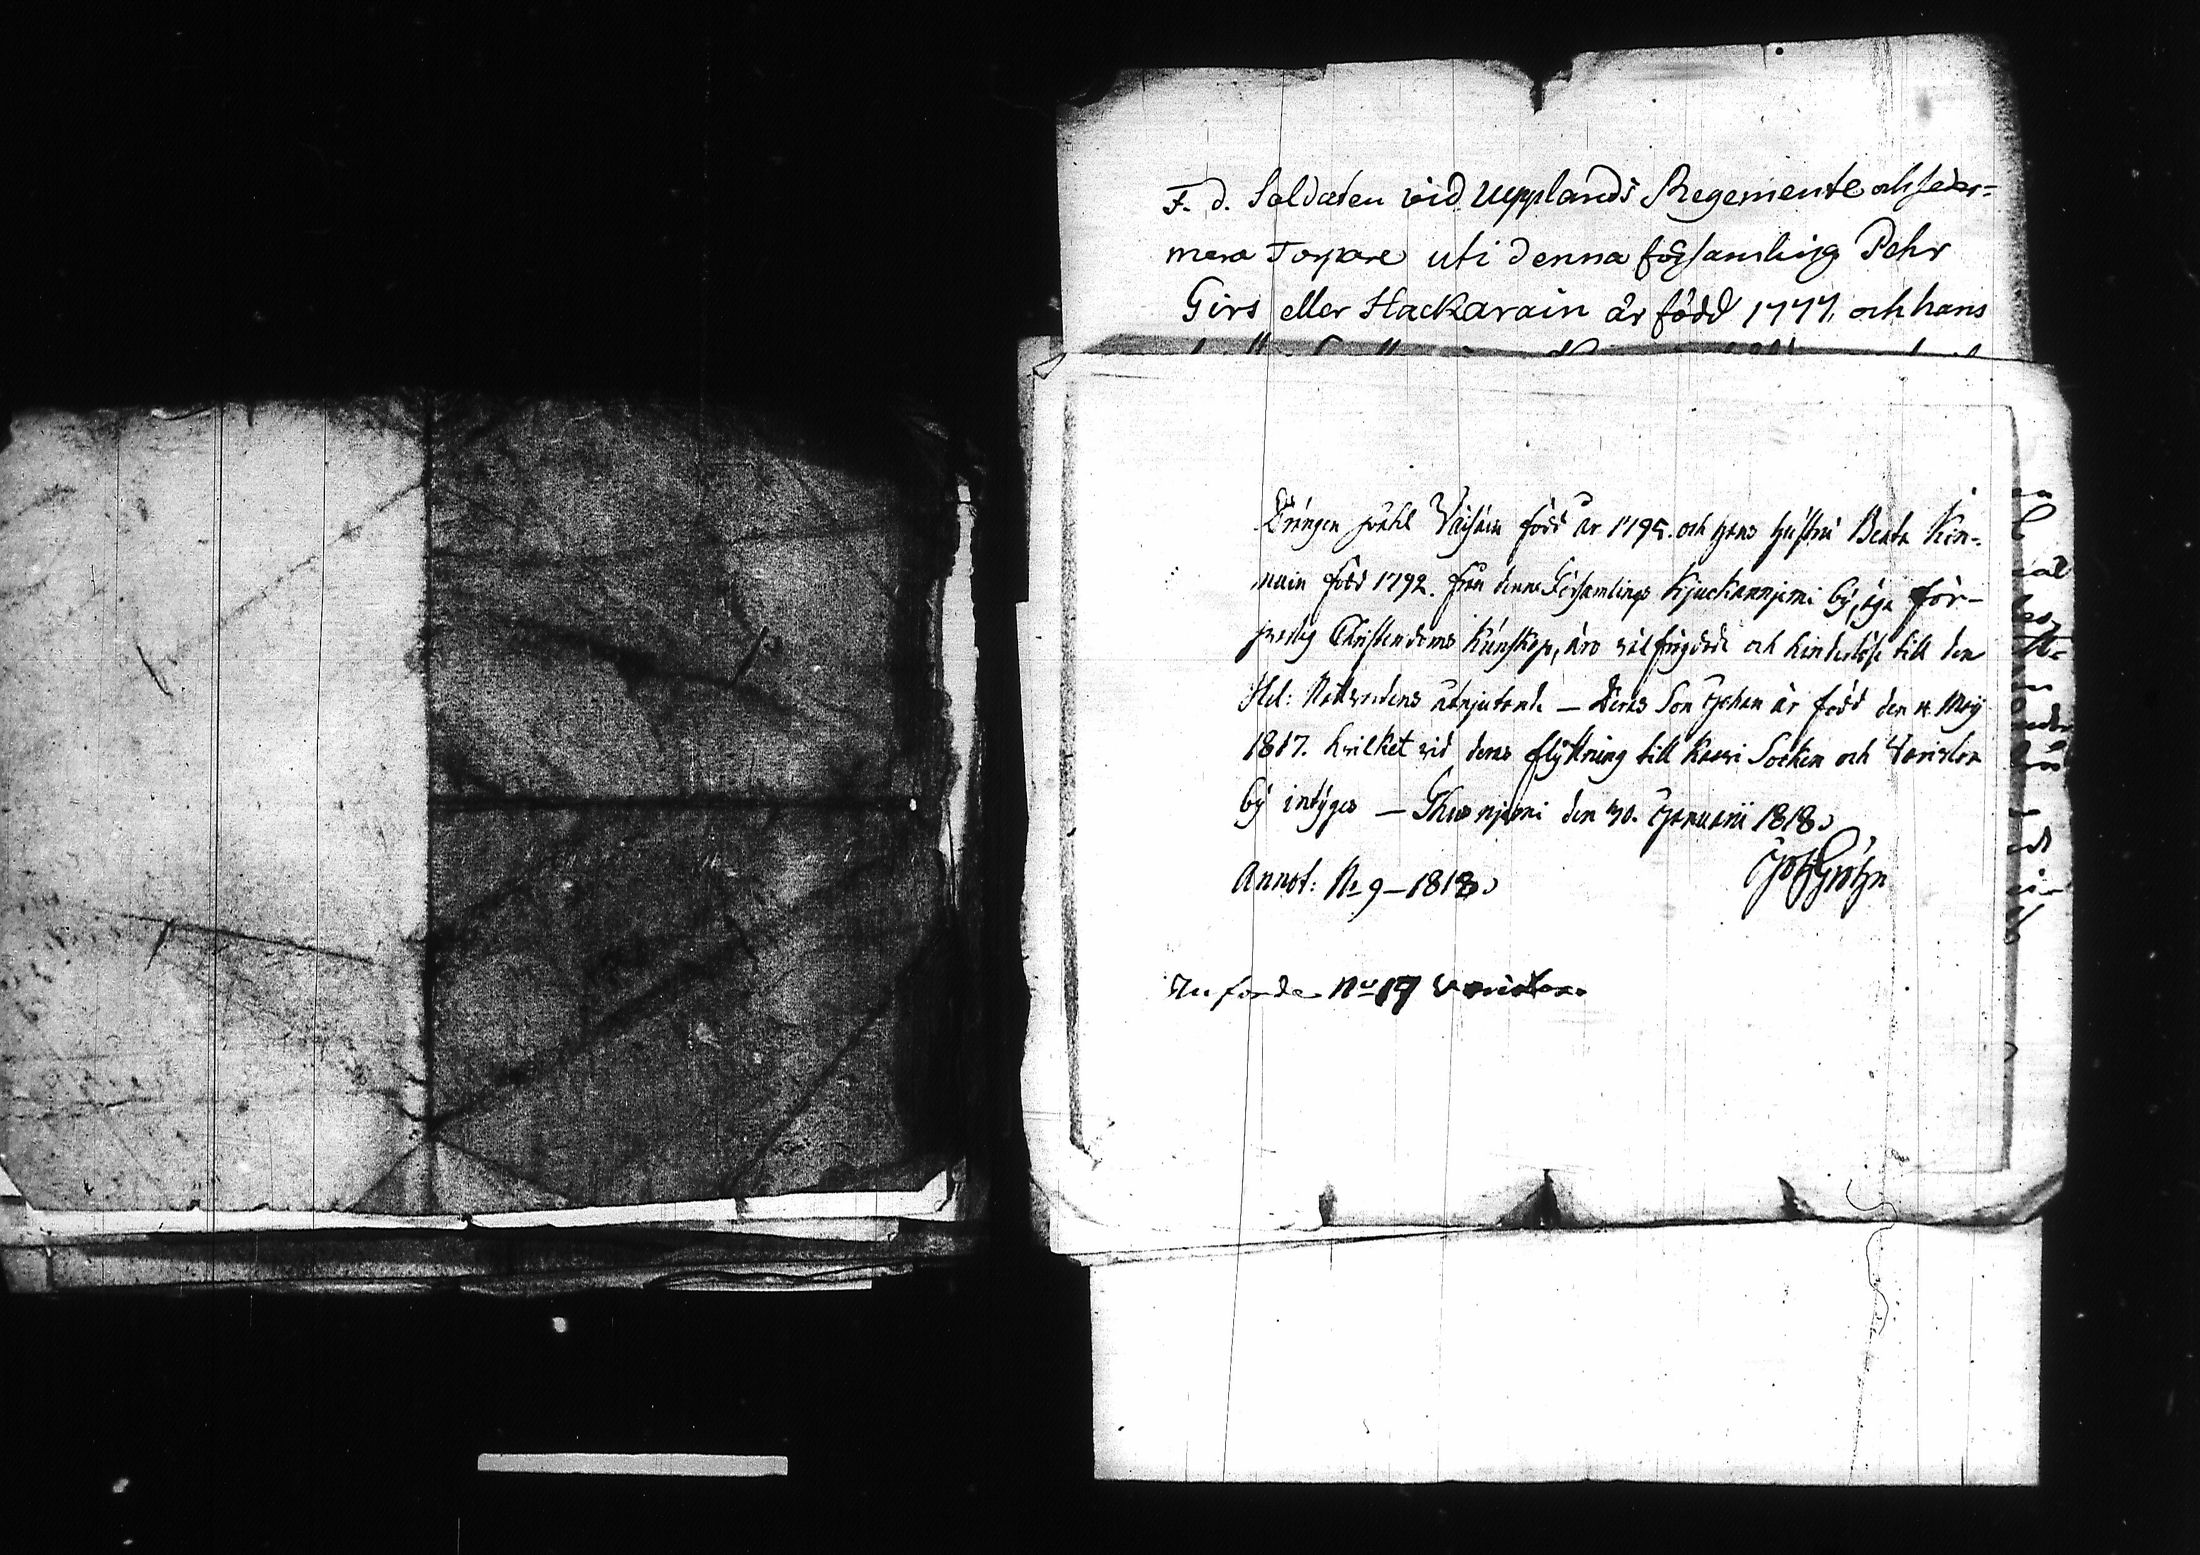 F. d. Soldaten vid Upplands Regemente och seder=
mera Torpare uti denna församling Pehr
Girs eller Hackarain är född 1777, och hans
Drängen Påhl Väisäin född år 1795. och hans hustru Beata Kin-
nuin född 1792. från denna Församlings Kjuckannjemi by, äga för-
svarlig Christendoms Kunskap, äro välfrägdade och hinderlöse till den
Hel: Nattvardens åtnjutande – Deras Son Johan är född den 4 Maij
1817. hvilket vid deras flyttning till Kaavi Socken och Varislax
by intyges – Idensalmi den 30. Januarii 1818.
Annot: No 9 – 1818.
Joh Gröhn
No 17